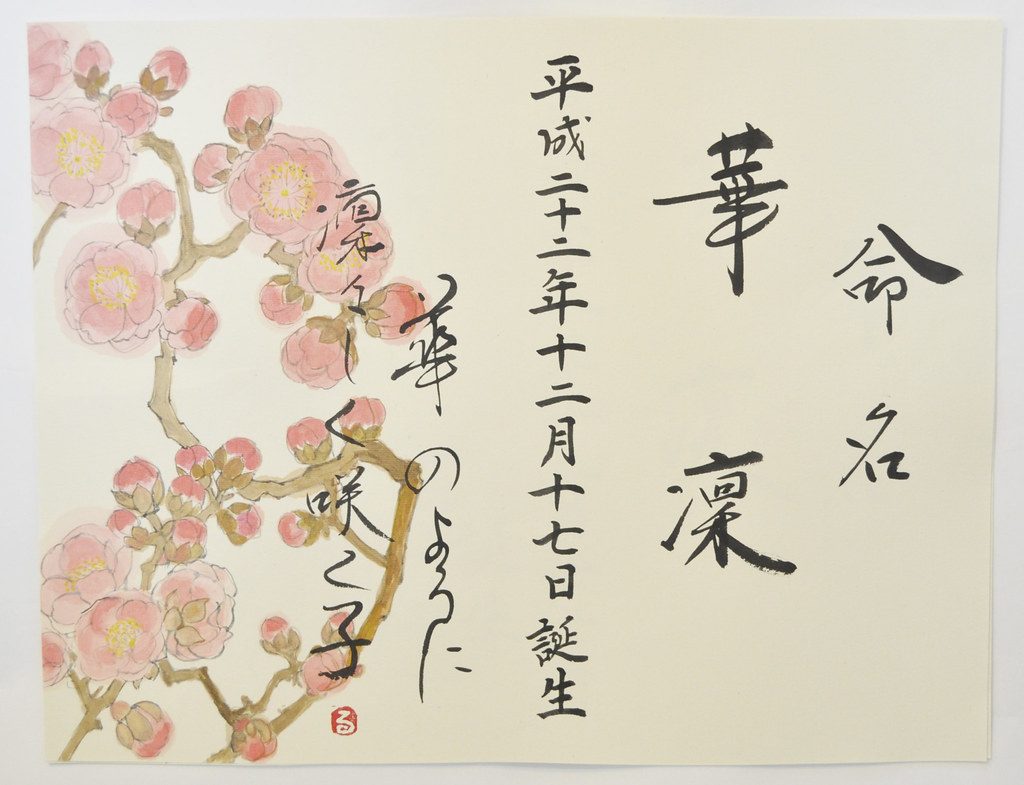 命名
華凛
平成二十二年十二月十七日誕生
華のように
凛々しく咲く子
る